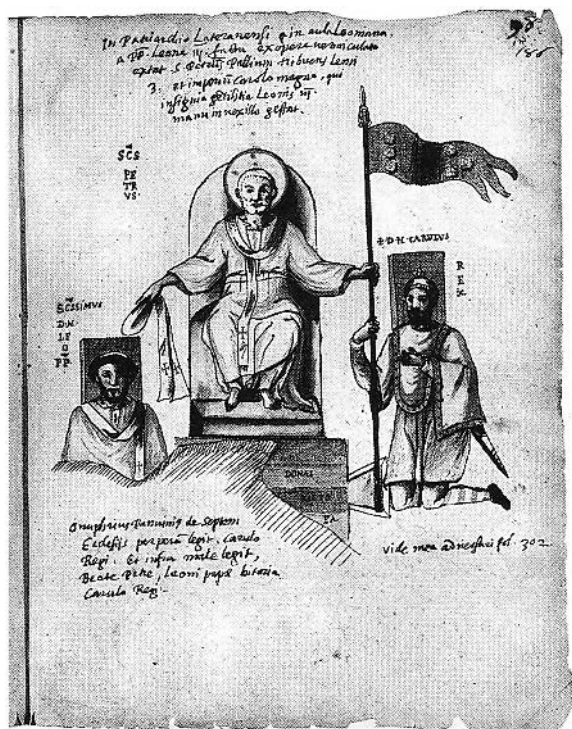 In Patriarchio Lateranensi in aula Leoniana
a PP. Leone iij. factu ex opere vermiculato
extat S. Petrus Pallium tribuens Leoni
3. et imperium Carolo magno, qui
insignia Leonis iij.
manu in vexillo gestat.
186
SCS
PE
TR
VS
✠ D·N·CARVLVS
R
E
X
SCSSIMVS
D·N·
LE
O
PP
DONAS
PA
Onuphrius Panuinius de septem
Ecclesijs perperā legit. Carulo
Regi. Et infra male legit,
Beate Petre, Leoni papę bitoria
Carulo Regi.
Vide mea fol. 302